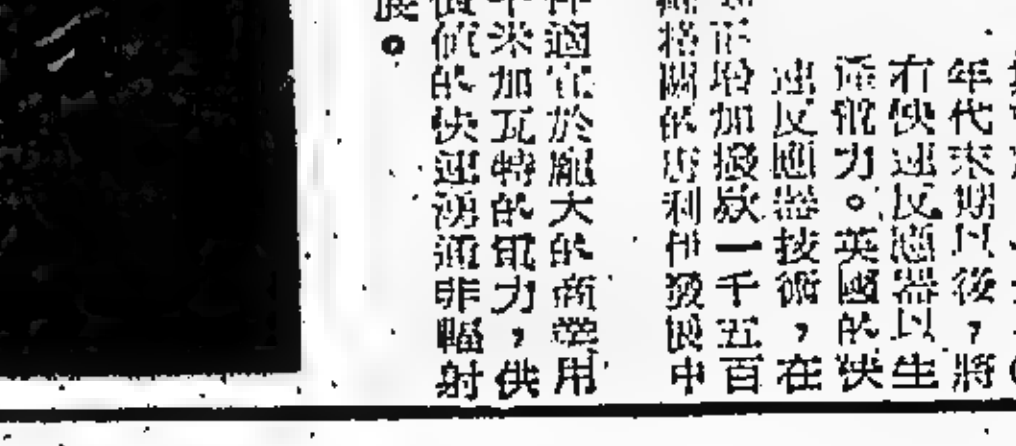 年代末期以後，將
有快速反應器以生
產電力。英國的快
速反應器技術，在
增加撥款一千五百
格蘭的唐利伊發展中
作適宜於龐大的商業用
米加瓦特的電力，供
值的快速滋
非輻射
展。